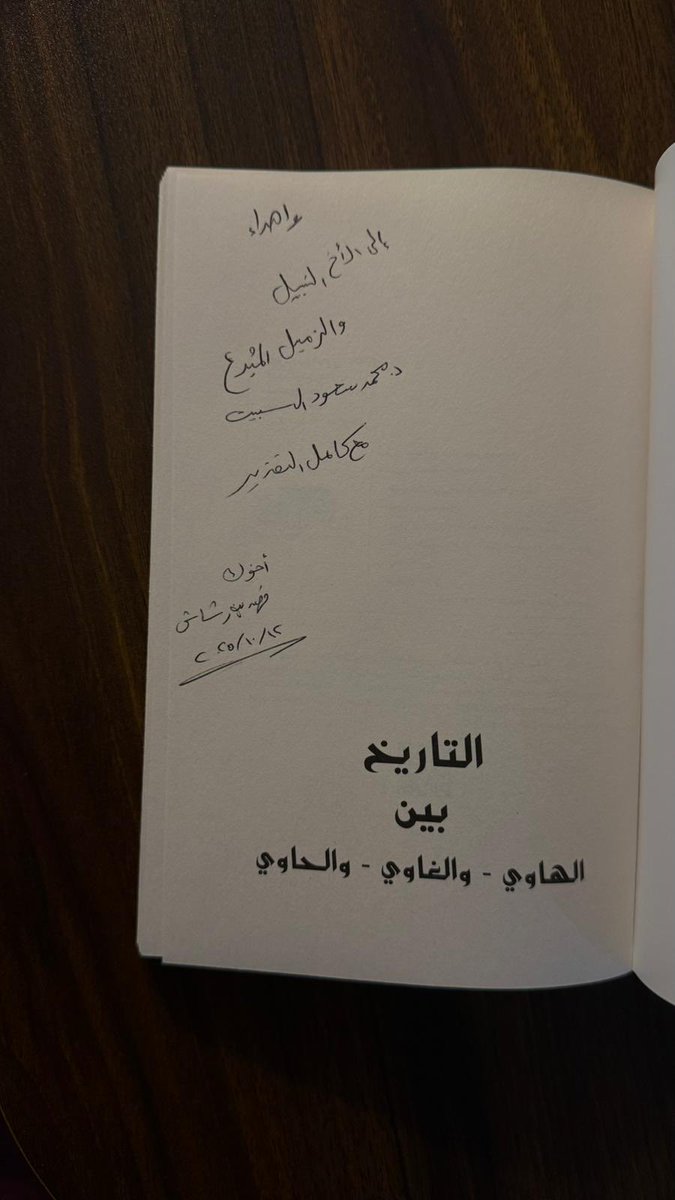 واهداء
إلى الأخ النبيل
والزميل المُبدع
د. محمد سعود السبيت
مع كامل التقدير
أخوك
رشاش
٢٠٢٥/١٠/١٢
التاريخ
بين
الهاوي - والغاوي - والحاوي